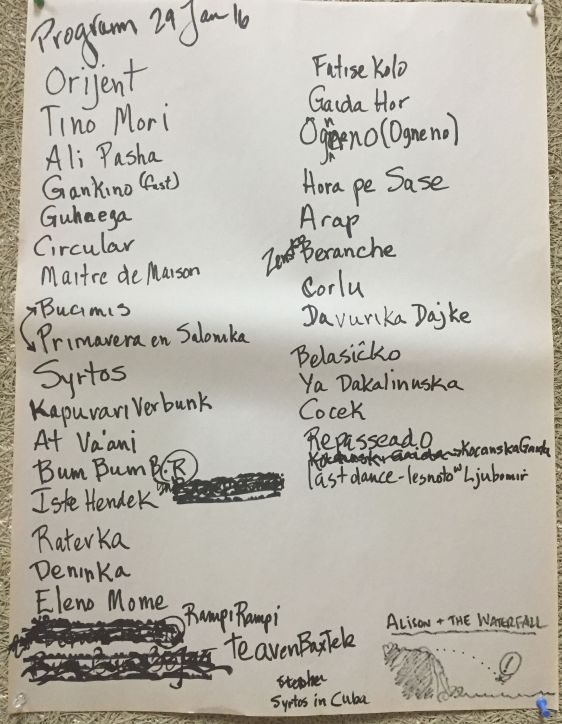 Program 29 Jan 16
Orijent
Tino Mori
Ali Pasha
Gankino (fast)
Guhaega
Circular
Maitre de Maison
Bucimis
Primavera en Salonika
Syrtos
Kapuvari Verbunk
At Va'ani
Bum Bum B.R
Iste Hendek
Raterka
Deninka
Eleno Mome
Rampi Rampi
TeavenBaxTele
Stephen
Syrtos in Cuba
Fatise Kolo
Gaida Hor
(Ogneno)
Hora pe Sase
Arap
Beranche
Corlu
Davurika Dajke
Belasičko
Ya Dakalinuska
Cocek
Repasseado
Kocanska Gaida
last dance - lesnoto w Ljubomir
ALISON + THE WATERFALL